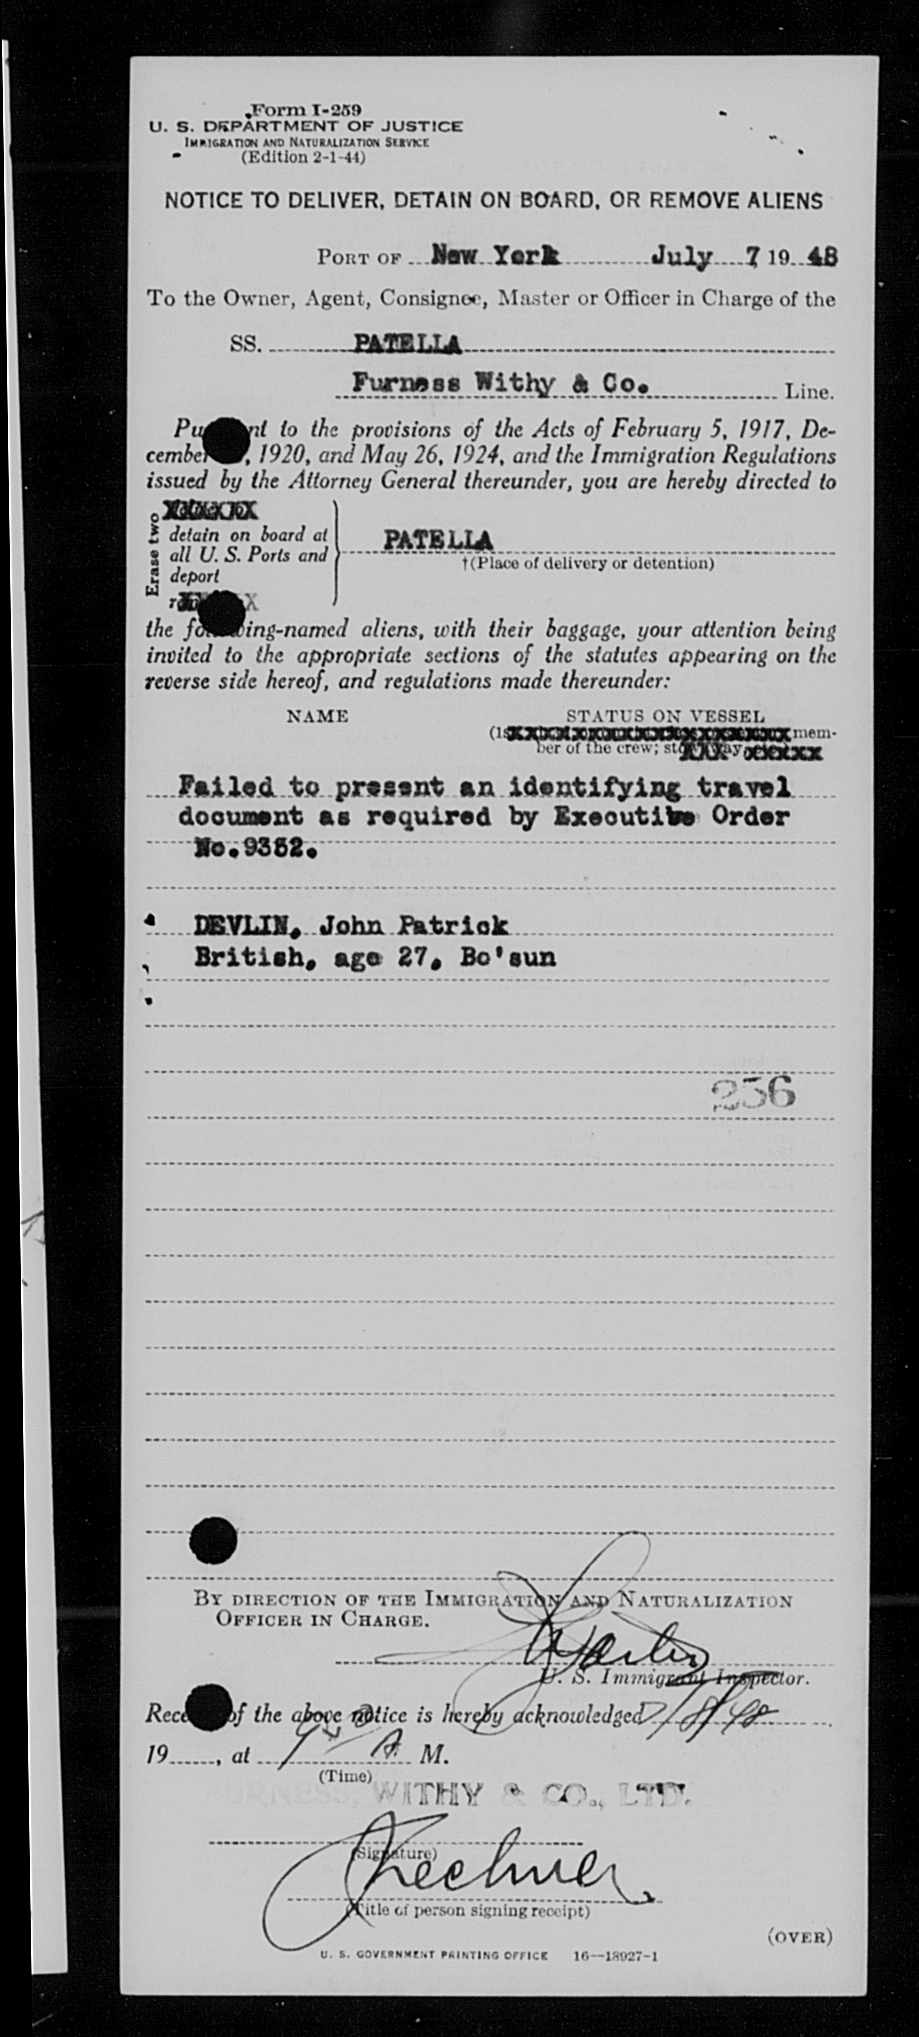 Form I-259
U. S. DEPARTMENT OF JUSTICE
IMMIGRATION AND NATURALIZATION SERVICE
(Edition 2-1-44)
NOTICE TO DELIVER, DETAIN ON BOARD, OR REMOVE ALIENS
PORT OF New York July 7 19 48
To the Owner, Agent, Consignee, Master or Officer in Charge of the
SS. PATELLA
Furness Withy & Co. Line.
Pu nt to the provisions of the Acts of February 5, 1917, De-
cember , 1920, and May 26, 1924, and the Immigration Regulations
issued by the Attorney General thereunder, you are hereby directed to
Erase two
detain on board at
all U. S. Ports and
deport
PATELLA
†(Place of delivery or detention)
the fo ing-named aliens, with their baggage, your attention being
invited to the appropriate sections of the statutes appearing on the
reverse side hereof, and regulations made thereunder:
NAME STATUS ON VESSEL
mem-
ber of the crew;
Failed to present an identifying travel
document as required by Executive Order
No.9352.
DEVLIN, John Patrick
British, age 27, Bo'sun
236
BY DIRECTION OF THE IMMIGRATION AND NATURALIZATION
OFFICER IN CHARGE.
U. S. Immigrant Inspector.
Rece of the above notice is hereby acknowledged 7/8/48
19 , at 9 A. M.
(Time)
FURNESS, WITHY & CO., LTD.
(Signature)
(Title of person signing receipt)
(OVER)
U. S. GOVERNMENT PRINTING OFFICE 16—18927-1